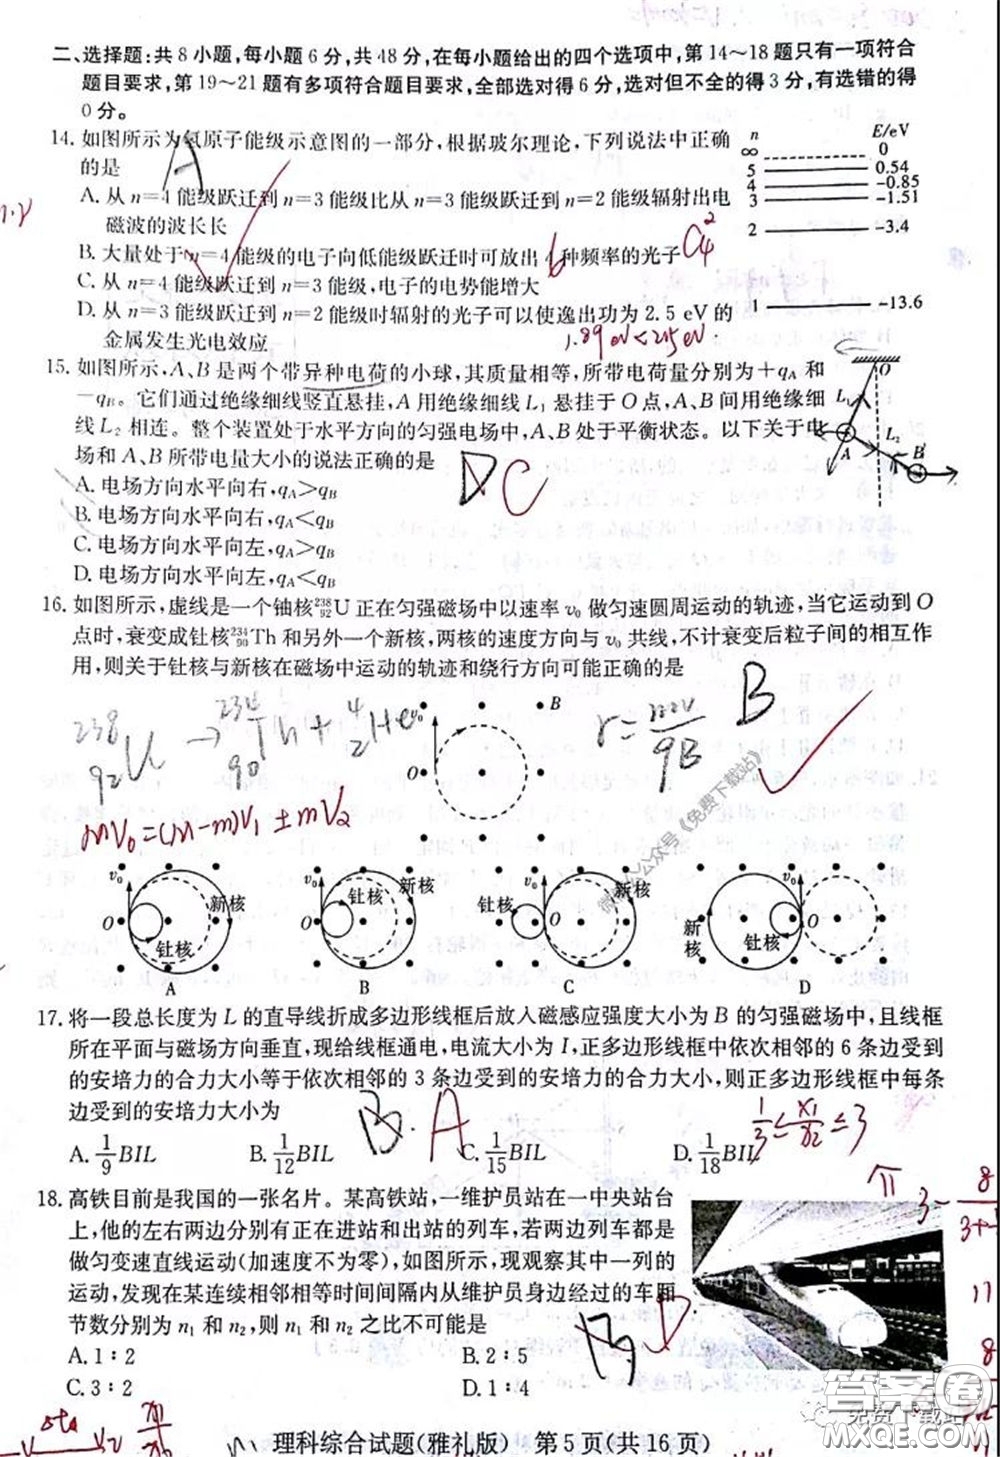 二、选择题:共8小题,每小题6分,共48分,在每小题给出的四个选项中,第14～18题只有一项符合
题目要求,第19～21题有多项符合题目要求,全部选对得6分,选对但不全的得3分,有选错的得
0分。
14. 如图所示为氢原子能级示意图的一部分,根据玻尔理论,下列说法中正确
的是
A
A. 从n=4能级跃迁到n=3能级比从n=3能级跃迁到n=2能级辐射出电
磁波的波长长
B. 大量处于n=4能级的电子向低能级跃迁时可放出4种频率的光子
6
C. 从n=4能级跃迁到n=3能级,电子的电势能增大
D. 从n=3能级跃迁到n=2能级时辐射的光子可以使逸出功为2.5 eV的
金属发生光电效应
1.89eV<2.5eV
n E/eV
∞ 0
5 0.54
4 -0.85
3 -1.51
2 -3.4
1 -13.6
15. 如图所示,A、B是两个带异种电荷的小球,其质量相等,所带电荷量分别为+qA和
-qB。它们通过绝缘细线竖直悬挂,A用绝缘细线L1悬挂于O点,A、B间用绝缘细
线L2相连。整个装置处于水平方向的匀强电场中,A、B处于平衡状态。以下关于电
场和A、B所带电量大小的说法正确的是
D C
A. 电场方向水平向右,qA>qB
B. 电场方向水平向右,qA<qB
C. 电场方向水平向左,qA>qB
D. 电场方向水平向左,qA<qB
O
L1
L2
A
B
16. 如图所示,虚线是一个铀核²³⁸₉₂U正在匀强磁场中以速率v0做匀速圆周运动的轨迹,当它运动到O
点时,衰变成钍核²³⁴₉₀Th和另外一个新核,两核的速度方向与v0共线,不计衰变后粒子间的相互作
用,则关于钍核与新核在磁场中运动的轨迹和绕行方向可能正确的是
²³⁸₉₂U→²³⁴₉₀Th+⁴₂He
v0
B
O
r=mv/qB
B
MV0=(M-m)V1±mV2
微信公众号《免费下载站》
v0 O 新核 钍核
v0 O 新核 钍核
钍核 v0 O 新核
新核 钍核 v0 O
A B C D
17. 将一段总长度为L的直导线折成多边形线框后放入磁感应强度大小为B的匀强磁场中,且线框
所在平面与磁场方向垂直,现给线框通电,电流大小为I,正多边形线框中依次相邻的6条边受到
的安培力的合力大小等于依次相邻的3条边受到的安培力的合力大小,则正多边形线框中每条
边受到的安培力大小为
B. A
1/3≤x1/x2≤3
A. 1/9 BIL B. 1/12 BIL C. 1/15 BIL D. 1/18 BIL
18. 高铁目前是我国的一张名片。某高铁站,一维护员站在一中央站台
上,他的左右两边分别有正在进站和出站的列车,若两边列车都是
做匀变速直线运动(加速度不为零),如图所示,现观察其中一列的
运动,发现在某连续相邻相等时间间隔内从维护员身边经过的车厢
节数分别为n1和n2,则n1和n2之比不可能是
B D
A. 1∶2 B. 2∶5
C. 3∶2 D. 1∶4
答案卷
免费下载站
理科综合试题(雅礼版) 第5页(共16页)